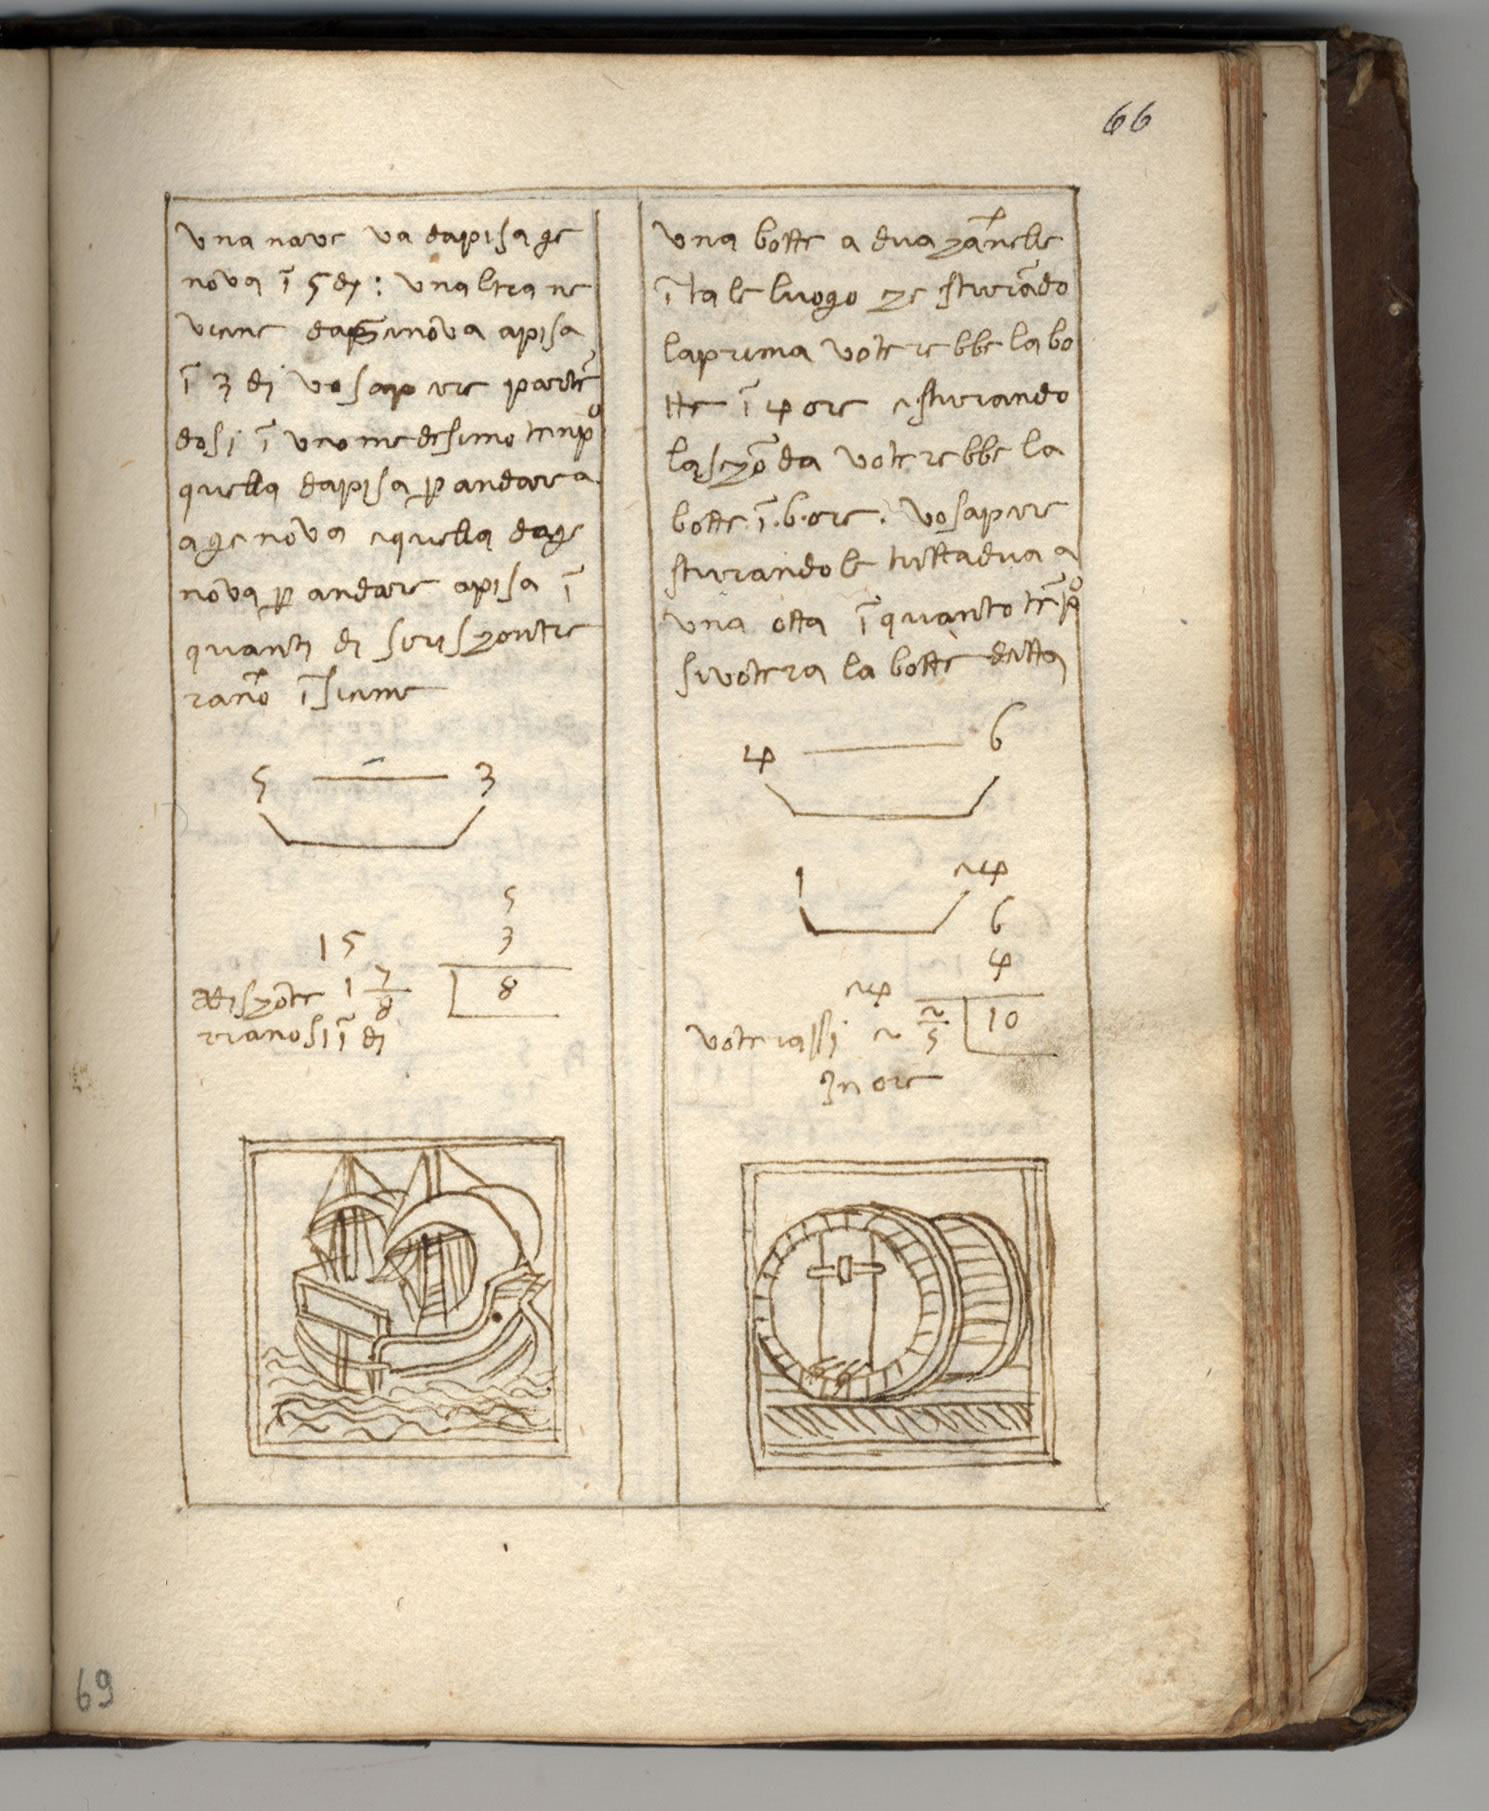 66
una nave va dapisa ge
nova ĩ 5 dj : unaltra ne
viene dagienova apisa
ĩ 3 dj vo sapere partẽ
dosi ĩ uno medesimo tenpo
quella dapisa p andare a
a genova equella dage
nova p andare apisa ĩ
quanti dj serischontre
rano ĩsieme
5 3
5
3
15
8
schonte 1 7/8
rranosi ĩ dj
una botte a dua channelle
ĩ tale luogo che sturãdo
laprima voterebbe la bo
tte ĩ 4 ore esturando
lasechõda voterebbe la
botte ĩ 6 ore. vo sapere
sturandole tuttadua a
una otta ĩ quanto tẽpo
sivotera la botte detta
4 6
1 24
6
4
24
10
voterassi 2 2/5
In ore
69